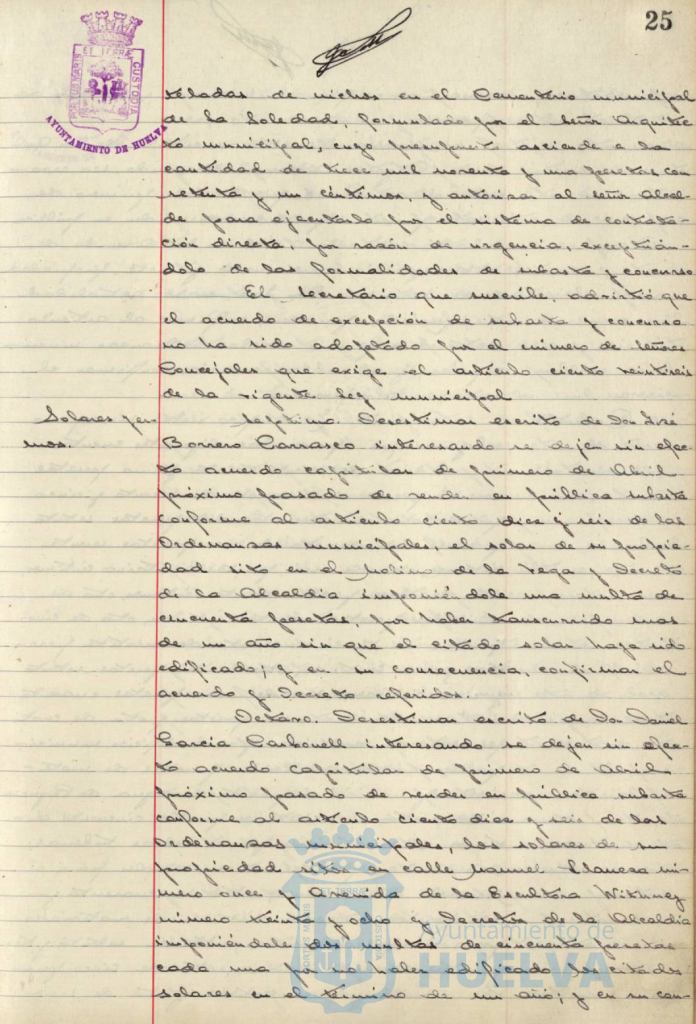 25
PORTUS MARIS ET TERRAE CUSTODIA
AYUNTAMIENTO DE HUELVA
teladas de nichos en el Cementerio municipal
de la Soledad, formulado por el señor Arquitec
to municipal, cuyo presupuesto asciende a la
cantidad de trece mil noventa y una pesetas con
setenta y un céntimos, y autorizar al señor Alcal-
de para ejecutarlo por el sistema de contrata-
ción directa, por razón de urgencia, exceptuán-
dolo de las formalidades de subasta y concurso
El Secretario que suscribe, advirtió que
el acuerdo de excepción de subasta y concurso
no ha sido adoptado por el número de señores
Concejales que exige el artículo ciento veintiseis
de la vigente Ley municipal
Solares yer-
mos.
Septimo. Desestimar escrito de Don José
Borrero Carrasco interesando se dejen sin efec-
to acuerdo capitular de primero de Abril
próximo pasado de vender en pública subasta
conforme al artículo ciento diez y seis de las
Ordenanzas municipales, el solar de su propie-
dad sito en el Molino de la Vega y Decreto
de la Alcaldia imponiéndole una multa de
cincuenta pesetas, por haber transcurrido mas
de un año sin que el citado solar haya sido
edificado; y en su consecuencia, confirmar el
acuerdo y Decreto referidos.
Octavo. Desestimar escrito de Don Daniel
García Carbonell interesando se dejen sin efec-
to acuerdo capitular de primero de Abril
próximo pasado de vender en pública subasta
conforme al artículo ciento diez y seis de las
Ordenanzas municipales, los solares de su
propiedad sitos en calle Manuel Llaneza nú-
mero once y Avenida de la Escultora Withney
número treinta y ocho y Decretos de la Alcaldía
imponiéndole dos multas de cincuenta pesetas
cada una por no haber edificado los citados
solares en el término de un año; y en su con-
Ayuntamiento de
HUELVA